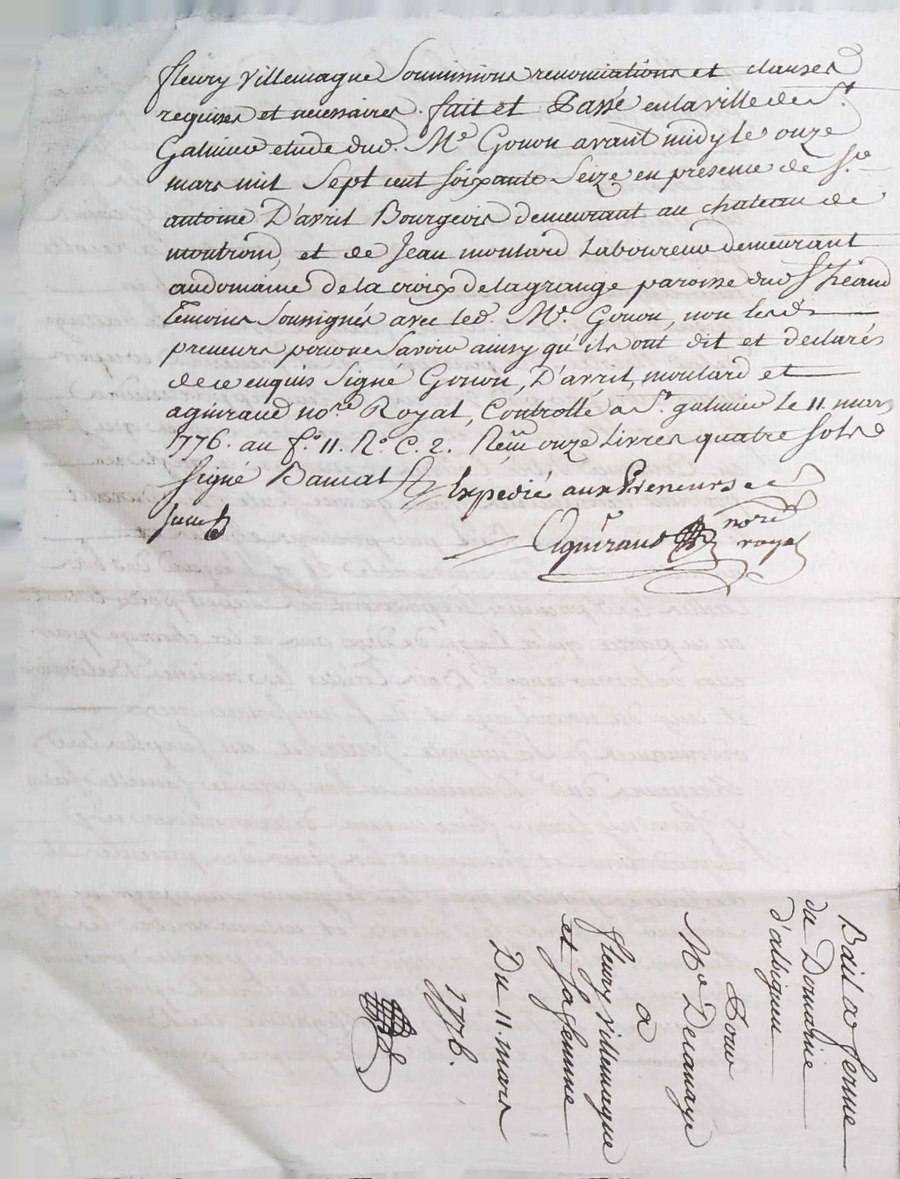 fleury Villemagne Soumissions renonciations et clauses
requises et necessaires. fait et Passé en la ville de St.
Galmier etude dud. Me Gonon avant midy le onze
mars mil Sept cent soixante Seize en presence de Sr.
antoine D'avril Bourgeois demeurant au chateau de
montrond, et de Jean moulard Laboureur demeurant
au domaine de la croix de la grange paroisse dud St
temoins Soussignés avec led. Me. Gonon, non lesds
preneurs pour ne Savoir ainsy qu'ils ont dit et declarés
de ce enquis Signé Gonon, D'avril, moulard et
aguiraud nore Royal, Controllé a St. galmier le 11 mars
1776. au fo. 11. Ro. C. 2. Reçu onze Livres quatre sols
Signé
Expedié aux Preneurs
Aguiraud nore
royal
Bail a ferme
du Domaine
d'albigeu
Pour
Me Delamaye
a
fleury Villemagne
et Sa femme
Du 11. mars
1776.